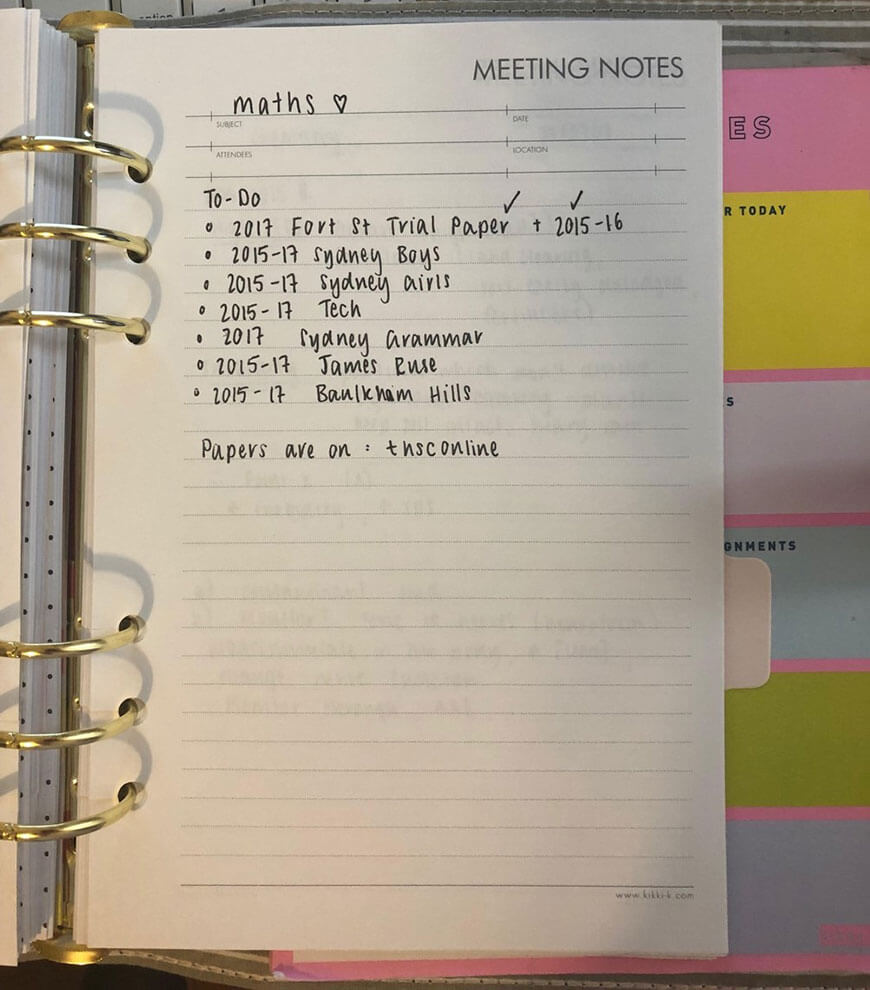 MEETING NOTES
maths ♡
SUBJECT DATE
ATTENDEES LOCATION
To-Do ✓ ✓
• 2017 Fort St Trial Paper + 2015-16
• 2015-17 Sydney Boys
• 2015-17 Sydney Girls
• 2015-17 Tech
• 2017 Sydney Grammar
• 2015-17 James Ruse
• 2015-17 Baulkham Hills
Papers are on : thsconline
www.kikki-k.com
ES
R TODAY
S
GNMENTS